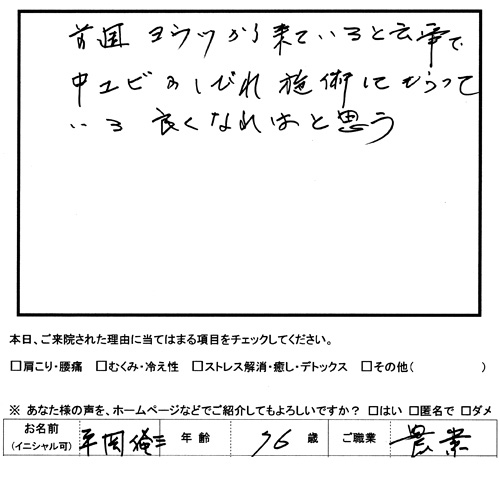 前回ヨウツから来ていると云事で
中ユビのしびれ施術してもらって
いる 良くなればと思う
本日、ご来院された理由に当てはまる項目をチェックしてください。
□肩こり・腰痛 □むくみ・冷え性 □ストレス解消・癒し・デトックス □その他( )
※ あなた様の声を、ホームページなどでご紹介してもよろしいですか? □はい □匿名で □ダメ
お名前 (イニシャル可) 平岡 三 年 齢 76 歳 ご職業 農業